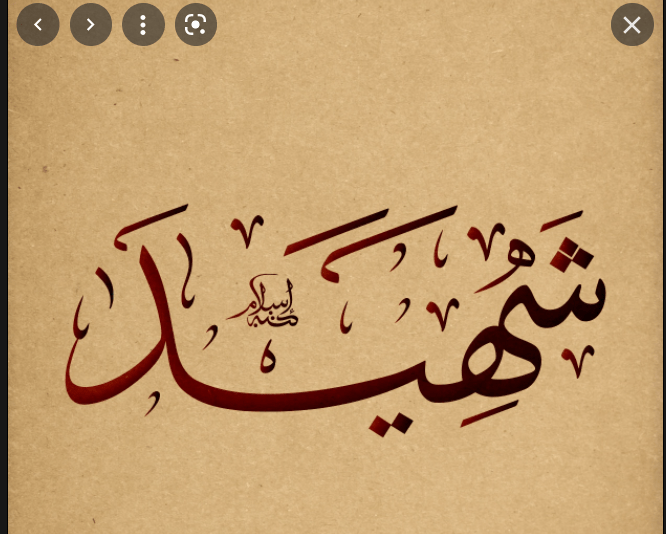 شَهِيد
كتبه إسلام